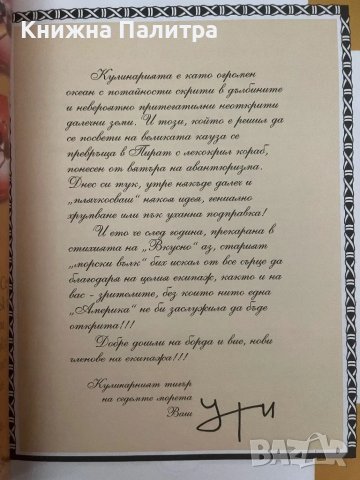 Книжна Палитра
Кулинарията е като огромен
океан с потайности скрити в дълбините
и невероятно притегателни неоткрити
далечни земи. И този, който е решил да
се посвети на великата кауза се
превръща в Пират с лекокрил кораб,
понесен от вятъра на авантюризма.
Днес си тук, утре някъде далеч и
„плячкосваш" някоя идея, гениално
хрумване или пък уханна подправка!
И ето че след година, прекарана в
стихията на „Вкусно" аз, старият
„морски вълк" бих искал от все сърце да
благодаря на целия екипаж, както и на
вас - зрителите, без които нито една
„Америка" не би заслужила да бъде
открита!!!
Добре дошли на борда и вие, нови
членове на екипажа!!!
Кулинарният тигър
на седемте морета
Ваш
Ути
BAZAR